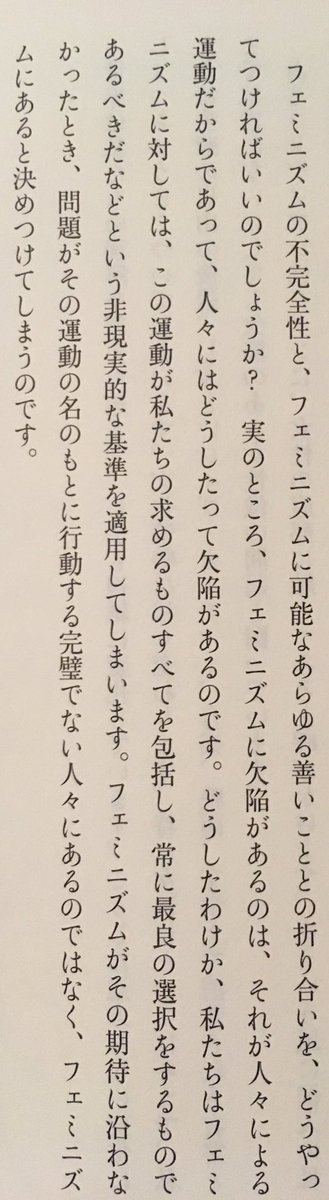 フェミニズムの不完全性と、フェミニズムに可能なあらゆる善いこととの折り合いを、どうやっ
てつければいいのでしょうか？　実のところ、フェミニズムに欠陥があるのは、それが人々による
運動だからであって、人々にはどうしたって欠陥があるのです。どうしたわけか、私たちはフェミ
ニズムに対しては、この運動が私たちの求めるものすべてを包括し、常に最良の選択をするもので
あるべきだなどという非現実的な基準を適用してしまいます。フェミニズムがその期待に沿わな
かったとき、問題がその運動の名のもとに行動する完璧でない人々にあるのではなく、フェミニズ
ムにあると決めつけてしまうのです。